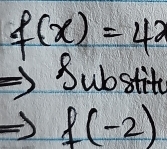 f(x) = 4x
⇒ Substitu
⇒ f(-2)